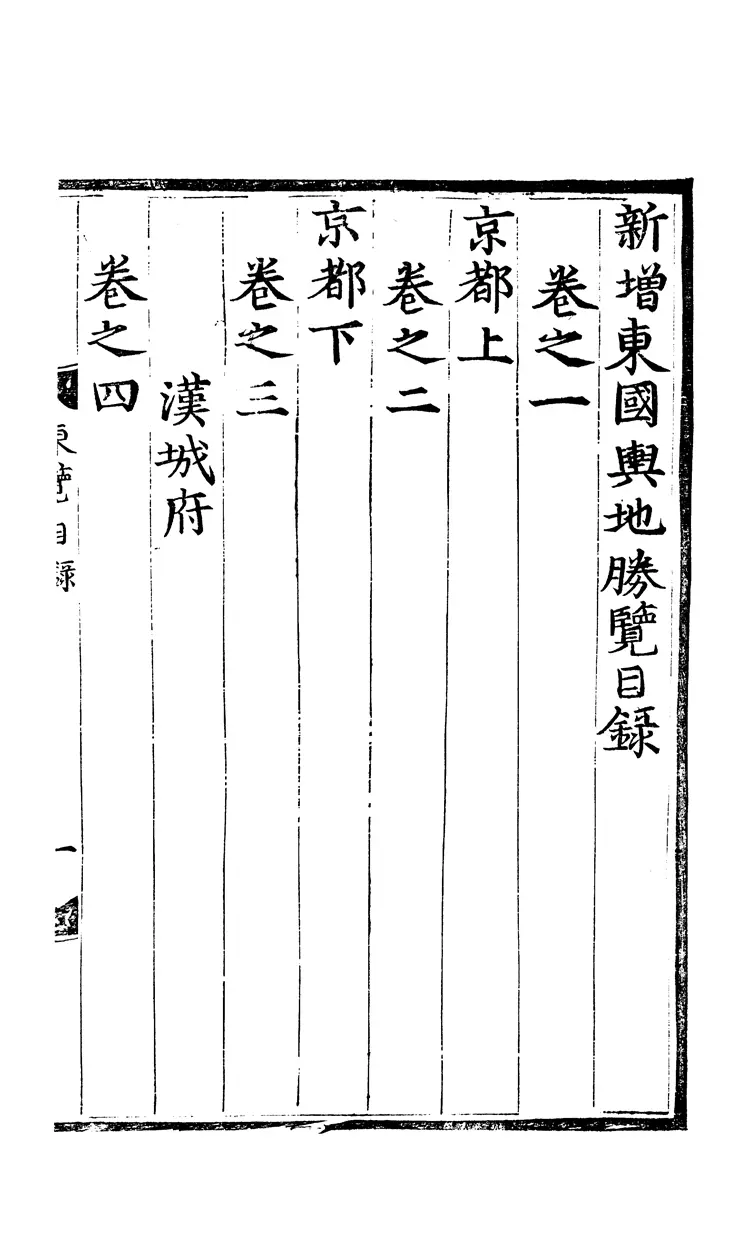 新增東國輿地勝覽目錄
卷之一
京都上
卷之二
京都下
卷之三
漢城府
卷之四
東覽目錄
一